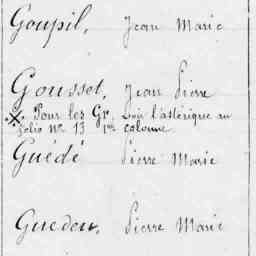 Goupil, Jean Marie
Gousset, Jean Pierre
※ Pour les Gr, Voir l'astérique au
folio No 13 1re colonne
Guédé Pierre Marie
Guedeu, Pierre Marie